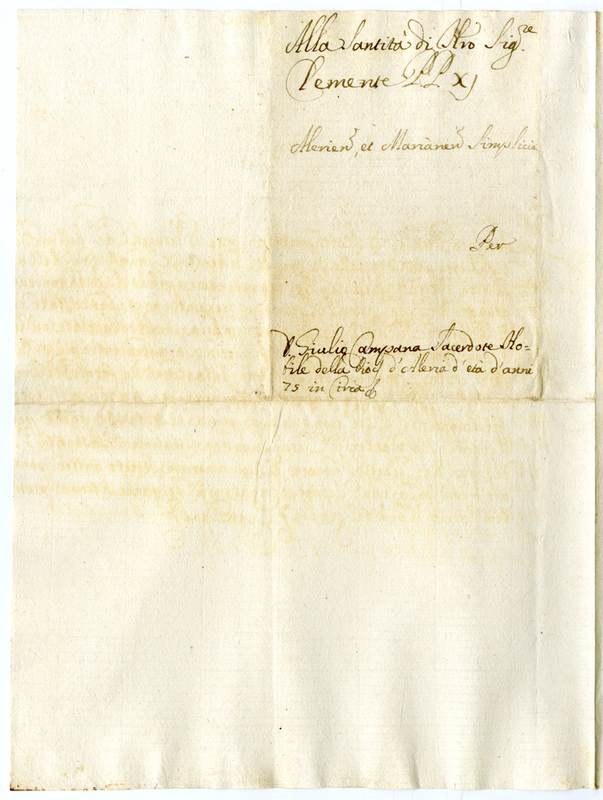 Alla Santità di Nro Sig.re
Clemente PP XI
Alerien, et Marianen Simplicia
Per
P. Giulio Campana Sacerdote No-
bile della Dioc d'Aleria d'età d'anni
75 in Circa